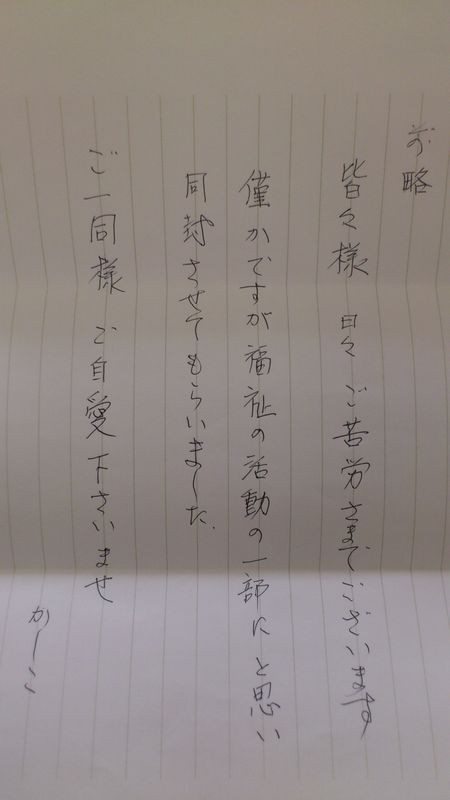 前略
皆々様 日々ご苦労さまでございます
僅かですが福祉の活動の一部にと思い
同封させてもらいました。
ご一同様 ご自愛下さいませ
かしこ